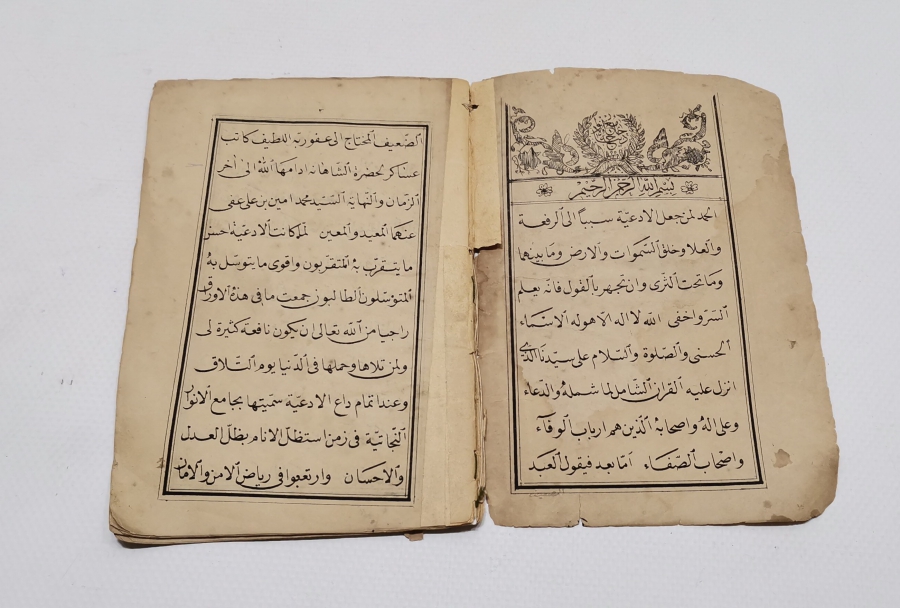 بسم الله الرحمن الرحيم
الحمد لمن جعل الادعيّة سببًا الى الرفعة
والعلا وخلق السّموات والارض وما بينهما
وما تحت الثّرى وان تجهر بالقول فانّه يعلم
السّر واخفى الله لا اله الا هو له الاسماء
الحسنى والصّلوة والسّلام على سيّدنا الذى
انزل عليه القران الشّامل لما شمله والدّعاء
وعلى اله واصحابه الّذين هم ارباب الوفاء
واصحاب الصّفاء امّا بعد فيقول العبد
الضّعيف المحتاج الى عفو ربّه اللطيف كاتب
عساكر لحضرة الشاهانه ادامها الله الى أخر
الزّمان والنّهاية السّيد محمد امين بن على عفى
عنهما المعيد والمعين لما كانت الادعيّة احسن
ما يتقرّب به المتقرّبون واقوى ما يتوسّل به
المتوسّلون الطالبون جمعت ما فى هذه الاوراق
راجيا من الله تعالى ان يكون نافعة كثيرة لى
ولمن تلاها وحملها فى الدّنيا يوم التّلاق
وعند اتمام داع الادعيّة سمّيتها بجامع الانوار
النّجاتيّة فى زمن استظلّ الانام بظلّ العدل
والاحسان وارتعبوا فى رياض الامن والامان